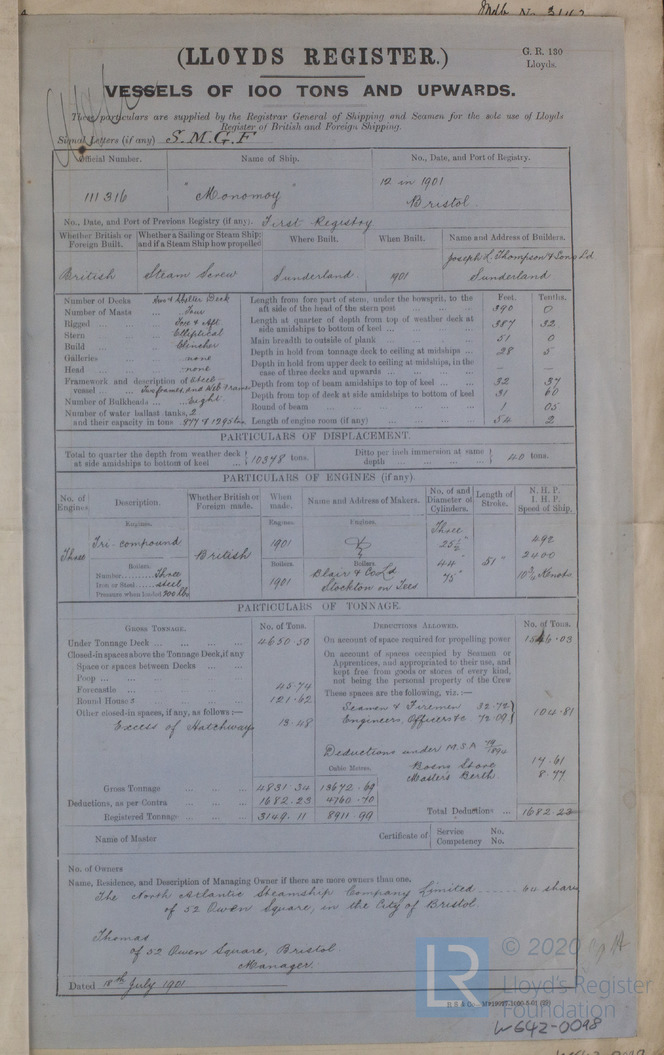 (LLOYDS REGISTER.)
G. R. 130
Lloyds.
VESSELS OF 100 TONS AND UPWARDS.
These particulars are supplied by the Registrar General of Shipping and Seamen for the sole use of Lloyds
Register of British and Foreign Shipping.
Signal Letters (if any) S.M.G.F
Official Number. Name of Ship. No., Date, and Port of Registry.
111316 "Monomoy" 12 in 1901
Bristol.
No., Date, and Port of Previous Registry (if any). First Registry
Whether British or Foreign Built. Whether a Sailing or Steam Ship; and if a Steam Ship how propelled Where Built. When Built. Name and Address of Builders.
British Steam Screw Sunderland 1901 Joseph L. Thompson & Sons Ld
Sunderland
Number of Decks Two & Shelter Deck
Number of Masts Four
Rigged Fore & Aft
Stern Elliptical
Build Clencher
Galleries none
Head none
Framework and description of vessel Steel
Number of Bulkheads Eight
Number of water ballast tanks, 2
and their capacity in tons
Feet. Tenths.
Length from fore part of stem, under the bowsprit, to the aft side of the head of the stern post 390 0
Length at quarter of depth from top of weather deck at side amidships to bottom of keel 387 32
Main breadth to outside of plank 51 0
Depth in hold from tonnage deck to ceiling at midships 28 5
Depth in hold from upper deck to ceiling at midships, in the case of three decks and upwards — —
Depth from top of beam amidships to top of keel 32 37
Depth from top of deck at side amidships to bottom of keel 31 60
Round of beam 1 05
Length of engine room (if any) 54 2
PARTICULARS OF DISPLACEMENT.
Total to quarter the depth from weather deck at side amidships to bottom of keel 10378 tons. Ditto per inch immersion at same depth 40 tons.
PARTICULARS OF ENGINES (if any).
No. of Engines. Description. Whether British or Foreign made. When made. Name and Address of Makers. No. of and Diameter of Cylinders. Length of Stroke. N. H. P. I. H. P. Speed of Ship.
Engines. Engines. Engines.
Three Tri-compound British 1901 Three 25½" 44" 75" 51" 492
2400
Knots
Boilers. Boilers. Boilers.
Number Three
Iron or Steel Steel
Pressure when loaded 200 lbs.
1901 Blair & Co Ld
Stockton on Tees
PARTICULARS OF TONNAGE.
GROSS TONNAGE. No. of Tons. DEDUCTIONS ALLOWED. No. of Tons.
Under Tonnage Deck 4650.50
Closed-in spaces above the Tonnage Deck, if any
Space or spaces between Decks
Poop
Forecastle 45.74
Round Houses 121.62
Other closed-in spaces, if any, as follows:—
Excess of Hatchways 13.48
On account of space required for propelling power 1546.03
On account of spaces occupied by Seamen or
Apprentices, and appropriated to their use, and
kept free from goods or stores of every kind,
not being the personal property of the Crew
These spaces are the following, viz.:—
Seamen & Firemen 32.72
Engineers, Officers &c 72.09
104.81
Deductions under M.S.A
Cubic Metres. Bosns Store 17.61
Masters Berth
Gross Tonnage 4831.34 13672.69
Deductions, as per Contra 1682.23 4760.70
Registered Tonnage 3149.11 8911.99
Total Deductions 1682.23
Name of Master Certificate of Service No.
Competency No.
No. of Owners
Name, Residence, and Description of Managing Owner if there are more owners than one.
The North Atlantic Steamship Company Limited 64 shares
of 52 Queen Square, in the City of Bristol.
Thomas
of 52 Queen Square, Bristol
Manager.
Dated 18th July 1901
© 2020
LR
Lloyd's Register
Foundation
W642-0098